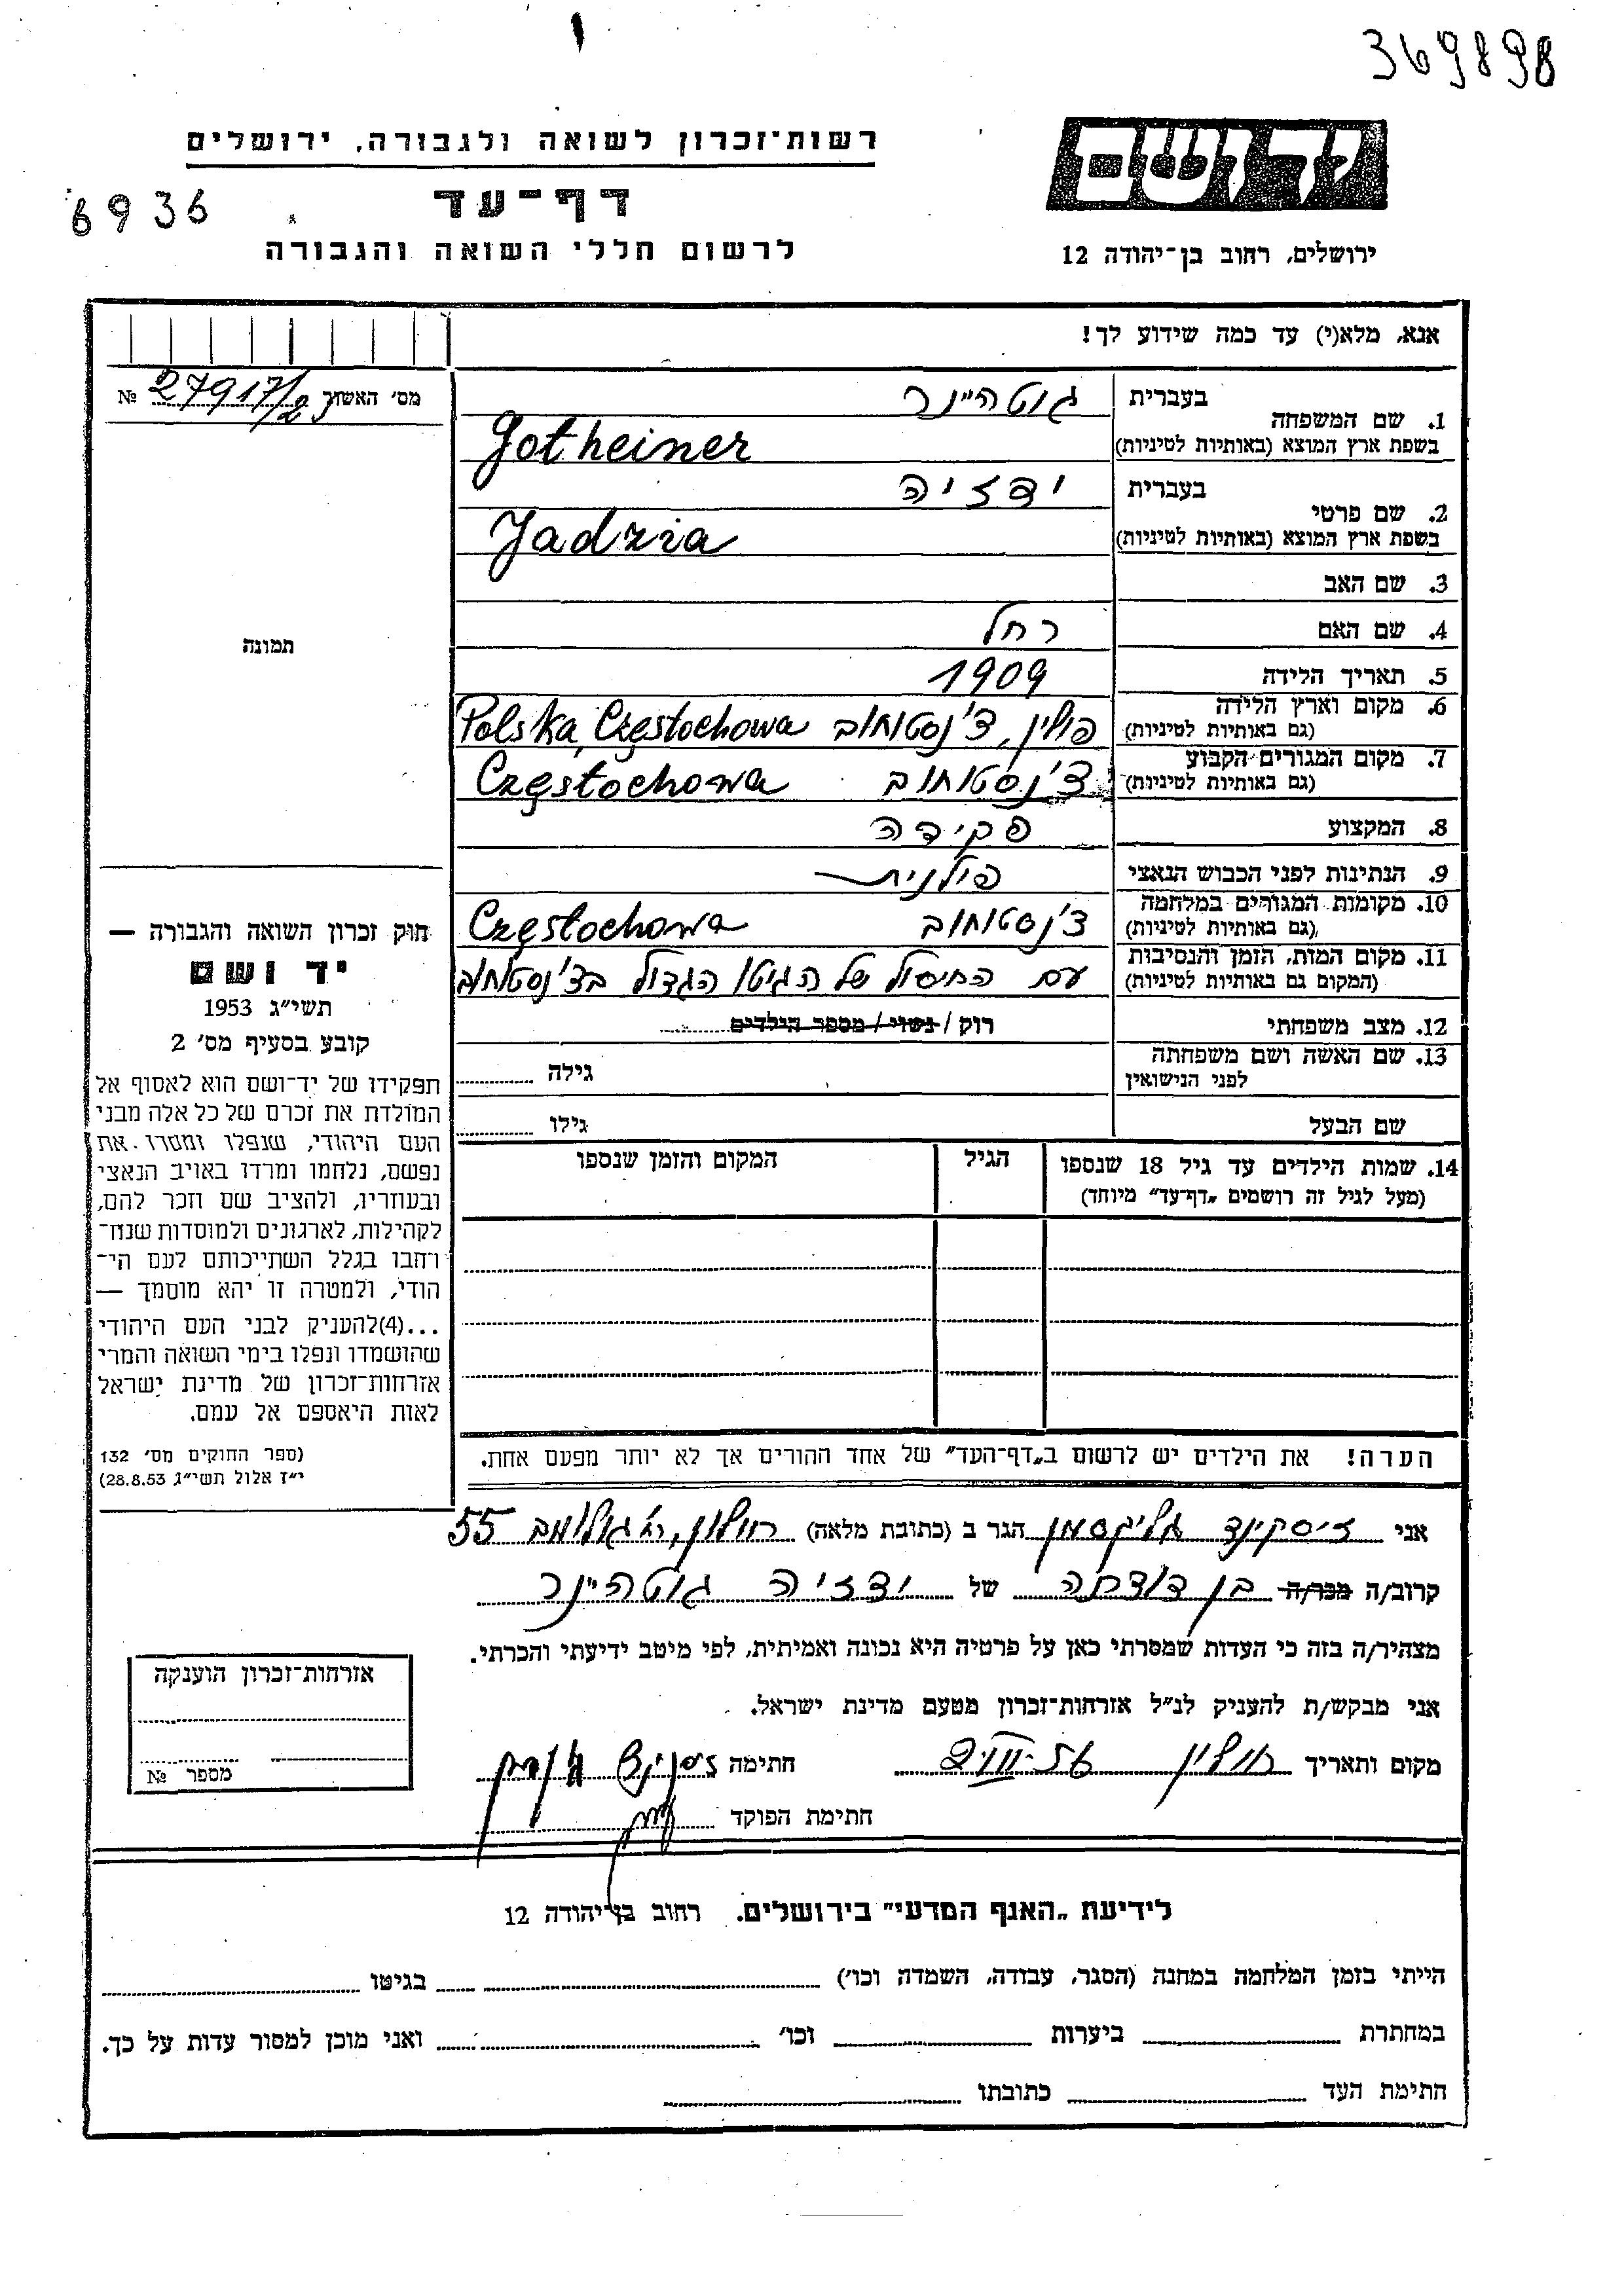 369898
רשות-זכרון לשואה ולגבורה, ירושלים
יד ושם
דף-עד
6936
לרשום חללי השואה והגבורה
ירושלים, רחוב בן-יהודה 12
אנא, מלא(י) עד כמה שידוע לך!
מס׳ האשור 27917/23 №
1. שם המשפחה
בעברית גוטהיינר
בשפת ארץ המוצא (באותיות לטיניות) Gotheiner
2. שם פרטי
בעברית ידזיה
בשפת ארץ המוצא (באותיות לטיניות) Jadzia
3. שם האב
4. שם האם רחל
5. תאריך הלידה 1909
6. מקום וארץ הלידה פולין, צ׳נסטוחוב Polska, Częstochowa
(גם באותיות לטיניות)
7. מקום המגורים הקבוע צ׳נסטוחוב Częstochowa
(גם באותיות לטיניות)
8. המקצוע פקידה
9. הנתינות לפני הכבוש הנאצי פולנית
10. מקומות המגורים במלחמה צ׳נסטוחוב Częstochowa
(גם באותיות לטיניות)
11. מקום המות, הזמן והנסיבות עם החיסול של הגיטו הגדול בצ׳נסטוחוב
(המקום גם באותיות לטיניות)
12. מצב משפחתי רוק / נשוי / מספר הילדים
13. שם האשה ושם משפחתה גילה
לפני הנישואין
שם הבעל גילו
14. שמות הילדים עד גיל 18 שנספו הגיל המקום והזמן שנספו
(מעל לגיל זה רושמים „דף-עד״ מיוחד)
הערה! את הילדים יש לרשום ב„דף-העד״ של אחד ההורים אך לא יותר מפעם אחת.
תמונה
חוק זכרון השואה והגבורה —
יד ושם
תשי״ג 1953
קובע בסעיף מס׳ 2
תפקידו של יד-ושם הוא לאסוף אל
המולדת את זכרם של כל אלה מבני
העם היהודי, שנפלו ומסרו את
נפשם, נלחמו ומרדו באויב הנאצי
ובעוזריו, ולהציב שם וזכר להם,
לקהילות, לארגונים ולמוסדות שנח-
רחבו בגלל השתייכותם לעם הי-
הודי, ולמטרה זו יהא מוסמך —
...(4)להעניק לבני העם היהודי
שהושמדו ונפלו בימי השואה והמרי
אזרחות-זכרון של מדינת ישראל
לאות היאספם אל עמם.
(ספר החוקים מס׳ 132
י״ז אלול תשי״ג 28.8.53)
אני זיסקינד אליקסמן הגר ב (כתובת מלאה) חולון, 55
קרוב/ה מכר/ה בן דודתה של ידזיה גוטהיינר
מצהיר/ה בזה כי העדות שמסרתי כאן על פרטיה היא נכונה ואמיתית, לפי מיטב ידיעתי והכרתי.
אני מבקש/ת להעניק לנ״ל אזרחות-זכרון מטעם מדינת ישראל.
מקום ותאריך חולון 56 חתימה
חתימת הפוקד
אזרחות-זכרון הוענקה
מספר №
לידיעת „האגף המדעי״ בירושלים, רחוב בן-יהודה 12
הייתי בזמן המלחמה במחנה (הסגר, עבודה, השמדה וכו׳) בגיטו
במחתרת ביערות וכו׳ ואני מוכן למסור עדות על כך.
חתימת העד כתובתו